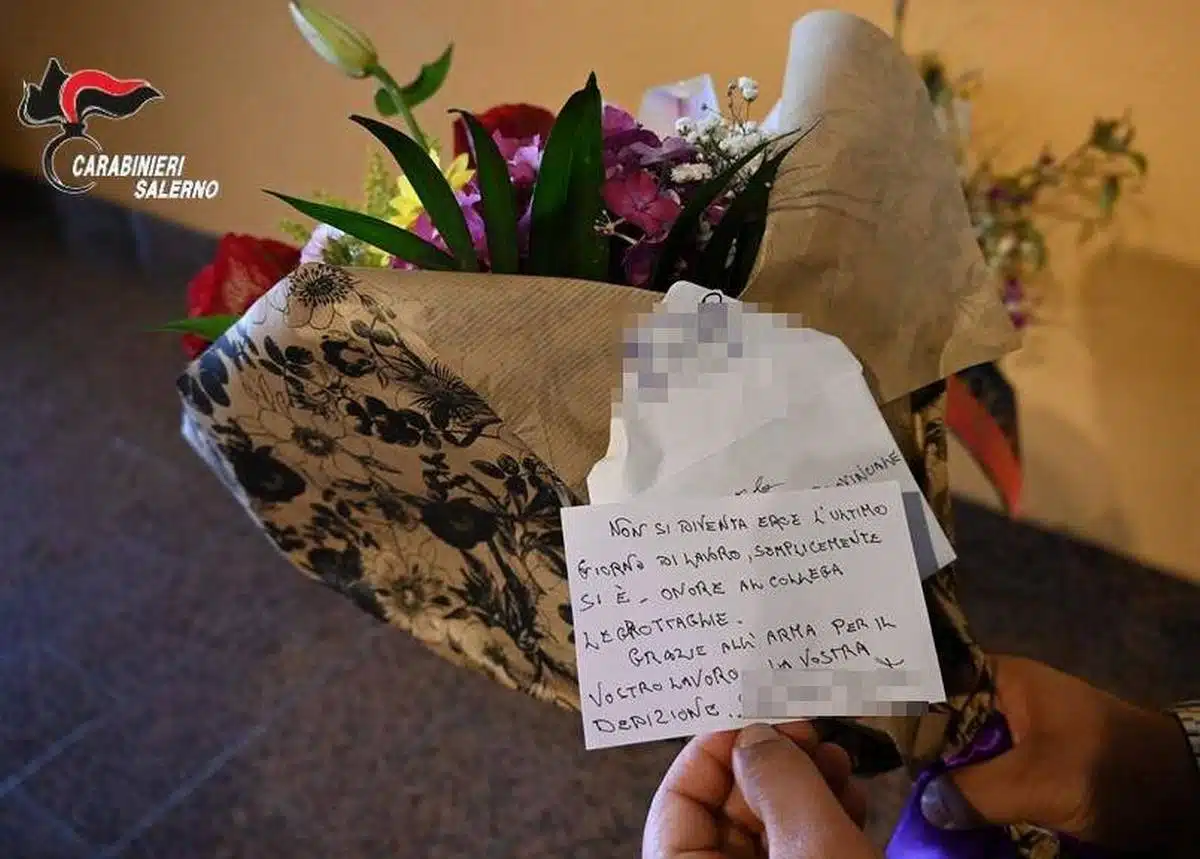 CARABINIERI
SALERNO
NON SI DIVENTA EROE L'ULTIMO
GIORNO DI LAVORO, SEMPLICEMENTE
SI È - ONORE AL COLLEGA
LEGROTTAGLIE.
GRAZIE ALL'ARMA PER IL
VOSTRO LAVORO LA VOSTRA
DEDIZIONE.